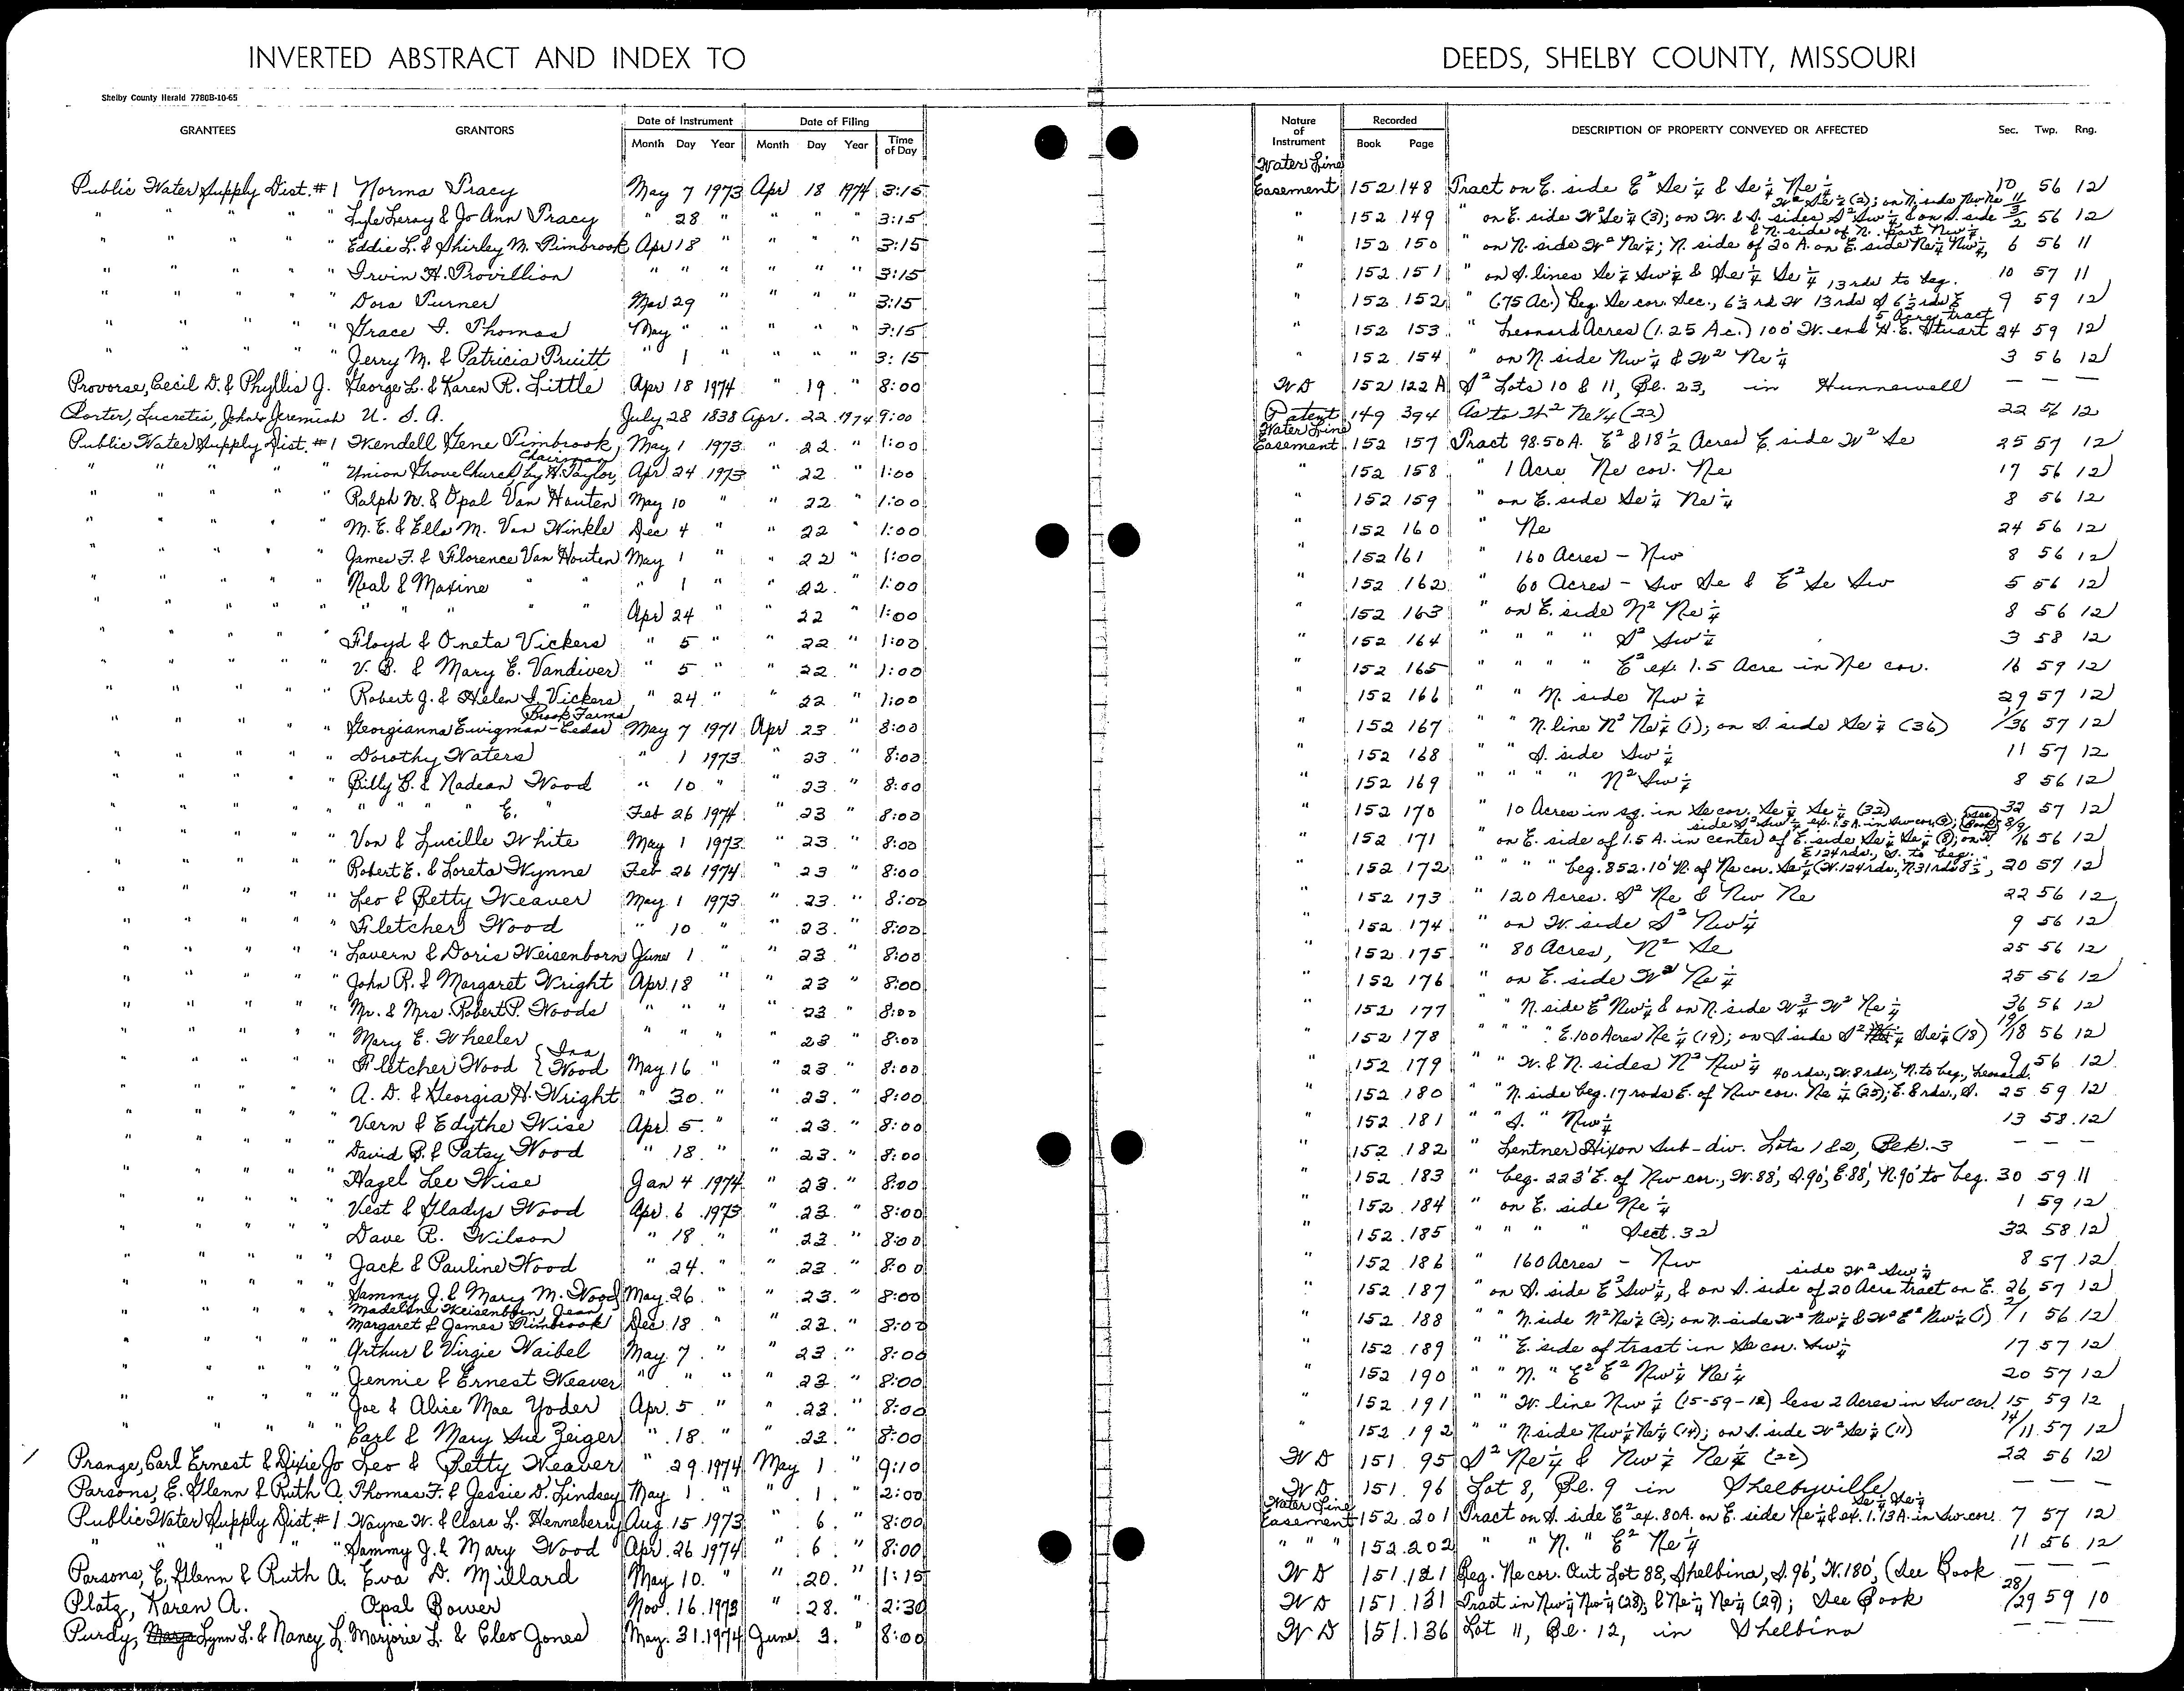 INVERTED ABSTRACT AND INDEX TO DEEDS, SHELBY COUNTY, MISSOURI
Shelby County Herald 7780B-10-65
GRANTEES GRANTORS Date of Instrument Month Day Year Date of Filing Month Day Year Time of Day Nature of Instrument Recorded Book Page DESCRIPTION OF PROPERTY CONVEYED OR AFFECTED Sec. Twp. Rng.
Water Line
Public Water Supply Dist. #1 Norma Tracy May 7 1973 Apr 18 1974 3:15 Easement 152 148 Tract on E. side E² Se¼ & Se¼ Ne¼ 10 56 12
" " " " " Lyle Leroy & Jo Ann Tracy " 28 " " " " 3:15 " 152 149 " on E. side W² Se¼ (3); on W. & S. sides S² Sw¼ & on S. side W² Se¼ (2); on N. side Nw Ne 11/3/2 56 12
" " " " " Eddie L. & Shirley M. Pimbrook Apr 18 " " " " 3:15 " 152 150 " on N. side W² Ne¼; N. side of 20 A. on E. side Ne¼ Nw¼, & N. side of N. part Nw¼ 6 56 11
" " " " " Irvin H. Provillion " " " " " " 3:15 " 152 151 " on S. lines Se¼ Sw¼ & Se¼ Se¼ 10 57 11
" " " " " Dora Turner Mar 29 " " " " 3:15 " 152 152 " (.75 Ac.) Beg. Se cor. Sec., 6½ rd W 13 rds S 6½ rds E 13 rds to beg. 9 59 12
" " " " " Grace I. Thomas May " " " " " 3:15 " 152 153 " Leonard Acres (1.25 Ac.) 100' W. end H. E. Stuart 5 Acre tract 24 59 12
" " " " " Jerry M. & Patricia Pruitt " 1 " " " " 3:15 " 152 154 " on N. side Nw¼ & W² Ne¼ 3 56 12
Provorse, Cecil D. & Phyllis J. George L. & Karen R. Little Apr 18 1974 " 19 " 8:00 WD 152 122A S² Lots 10 & 11, Bl. 23, in Hunnewell — — —
Porter, Lucretia, John & Jeremiah U. S. A. July 28 1838 Apr. 22 1974 9:00 Patent 149 394 As to W² Ne¼ (22) 22 56 12
Water Line
Public Water Supply Dist. #1 Wendell Gene Pimbrook, May 1 1973 " 22 " 1:00 Easement 152 157 Tract 98.50 A. E² & 18½ Acres E. side W² Se 35 57 12
" " " " " Union Grove Church, by H. Taylor, Chairman Apr 24 1973 " 22 " 1:00 " 152 158 " 1 Acre Ne cor. Ne 17 56 12
" " " " " Ralph W. & Opal Van Houten May 10 " " 22 " 1:00 " 152 159 " on E. side Se¼ Ne¼ 8 56 12
" " " " " M. E. & Ella M. Van Winkle Dec 4 " " 22 " 1:00 " 152 160 " Ne 24 56 12
" " " " " James F. & Florence Van Houten May 1 " " 22 " 1:00 " 152 161 " 160 Acres - Nw 8 56 12
" " " " " Neal & Maxine " " " 1 " " 22 " 1:00 " 152 162 " 60 Acres - Sw Se & E² Se Sw 5 56 12
" " " " " " " " " Apr 24 " " 22 " 1:00 " 152 163 " on E. side N² Ne¼ 8 56 12
" " " " " Floyd & Oneta Vickers " 5 " " 22 " 1:00 " 152 164 " " " " S² Sw¼ 3 58 12
" " " " " V. B. & Mary E. Vandiver " 5 " " 22 " 1:00 " 152 165 " " " " E² ex. 1.5 Acre in Ne cor. 16 59 12
" " " " " Robert J. & Helen I. Vickers " 24 " " 22 " 1:00 " 152 166 " " N. side Nw¼ 29 57 12
" " " " " Georgianna Ewigman - Cedar Brook Farms May 7 1971 Apr 23 " 8:00 " 152 167 " " N. line N² Ne¼ (1); on S. side Se¼ (36) 1/36 57 12
" " " " " Dorothy Waters " 1 1973 " 23 " 8:00 " 152 168 " " S. side Sw¼ 11 57 12
" " " " " Billy B. & Nadean Wood " 10 " " 23 " 8:00 " 152 169 " " " " N² Sw¼ 8 56 12
" " " " " " " " E. " Feb 26 1974 " 23 " 8:00 " 152 170 " 10 Acres in sq. in Se cor. Se¼ Se¼ (32) 32 57 12
" " " " " Von & Lucille White May 1 1973 " 23 " 8:00 " 152 171 " on E. side of 1.5 A. in center of E. side Se¼ Se¼ (8); on W. side S² Sw¼ ex. 1.5 A. in Sw cor. (9); (See Book) 8/9/16 56 12
" " " " " Robert E. & Loreta Wynne Feb 26 1974 " 23 " 8:00 " 152 172 " " " " beg. 852.10' N. of Ne cor. Se¼ (W. 124 rds., N. 31 rds 8½, E 124 rds., S. to beg. 20 57 12
" " " " " Leo & Betty Weaver May 1 1973 " 23 " 8:00 " 152 173 " 120 Acres. S² Ne & Nw Ne 22 56 12
" " " " " Fletcher Wood " 10 " " 23 " 8:00 " 152 174 " on W. side S² Nw¼ 9 56 12
" " " " " Lavern & Doris Weisenborn June 1 " " 23 " 8:00 " 152 175 " 80 Acres, N² Se 25 56 12
" " " " " John R. & Margaret Wright Apr. 18 " " 23 " 8:00 " 152 176 " on E. side W² Ne¼ 25 56 12
" " " " " Mr. & Mrs. Robert P. Woods " " " " 23 " 8:00 " 152 177 " " N. side E² Nw¼ & on N. side W¾ W² Ne¼ 36 56 12
" " " " " Mary E. Wheeler " " " " 23 " 8:00 " 152 178 " " " " E. 100 Acres Ne¼ (19); on S. side S² Se¼ (18) 19/18 56 12
" " " " " Fletcher Wood { Ina Wood May 16 " " 23 " 8:00 " 152 179 " " W. & N. sides N² Nw¼ 9 56 12
" " " " " A. D. & Georgia H. Wright " 30 " " 23 " 8:00 " 152 180 " " N. side beg. 17 rods E. of Nw cor. Ne¼ (25); E. 8 rds., S. 40 rds., W. 8 rds., N. to beg., Leonard 25 59 12
" " " " " Vern & Edythe Wise Apr. 5 " " 23 " 8:00 " 152 181 " " S. " Nw¼ 13 58 12
" " " " " David B. & Patsy Wood " 18 " " 23 " 8:00 " 152 182 " Lentner Hixon Sub-div. Lots 1 & 2, Blk. 3 — — —
" " " " " Hazel Lee Wise Jan 4 1974 " 23 " 8:00 " 152 183 " beg. 223' E. of Nw cor., W. 88', S. 90', E. 88', N. 90' to beg. 30 59 11
" " " " " Vest & Gladys Wood Apr. 6 1973 " 23 " 8:00 " 152 184 " on E. side Ne¼ 1 59 12
" " " " " Dave R. Wilson " 18 " " 23 " 8:00 " 152 185 " " " " Sect. 32 32 58 12
" " " " " Jack & Pauline Wood " 24 " " 23 " 8:00 " 152 186 " 160 Acres - Nw 8 57 12
" " " " " Sammy J. & Mary M. Wood May 26 " " 23 " 8:00 " 152 187 " on S. side E² Sw¼, & on S. side of 20 Acre tract on E. side W² Sw¼ 26 57 12
" " " " " Madeline Weisenborn, Jean, Margaret & James Pimbrook Dec. 18 " " 23 " 8:00 " 152 188 " " N. side N² Ne¼ (2); on N. side W² Nw¼ & W² E² Nw¼ (1) 2/1 56 12
" " " " " Arthur & Virgie Waibel May 7 " " 23 " 8:00 " 152 189 " " E. side of tract in Se cor. Sw¼ 17 57 12
" " " " " Jennie & Ernest Weaver " " " " 23 " 8:00 " 152 190 " " N. " E² E² Nw¼ Ne¼ 20 57 12
" " " " " Joe & Alice Mae Yoder Apr. 5 " " 23 " 8:00 " 152 191 " " W. line Nw¼ (15-59-12) less 2 Acres in Sw cor. 15 59 12
" " " " " Carl & Mary Sue Zeiger " 18 " " 23 " 8:00 " 152 192 " " N. side Nw¼ Ne¼ (14); on S. side W² Se¼ (11) 14/11 57 12
Prange, Carl Ernest & Dixie Jo Leo & Betty Weaver " 29 1974 May 1 " 9:10 WD 151 95 S² Ne¼ & Nw¼ Ne¼ (22) 22 56 12
Parsons, E. Glenn & Ruth A. Thomas F. & Jessie D. Lindsey May 1 " " 1 " 2:00 WD 151 96 Lot 8, Bl. 9 in Shelbyville — — —
Water Line
Public Water Supply Dist. #1 Wayne W. & Clara L. Henneberry Aug. 15 1973 " 6 " 8:00 Easement 152 201 Tract on S. side E² ex. 80A. on E. side Ne¼ & ex. 1.13 A. in Sw cor. Se¼ Se¼ 7 57 12
" " " " " Sammy J. & Mary Wood Apr. 26 1974 " 6 " 8:00 " " " 152 202 " " N. " E² Ne¼ 11 56 12
Parsons, E. Glenn & Ruth A. Eva D. Millard May 10 " " 20 " 1:15 WD 151 121 Beg. Ne cor. Out Lot 88, Shelbina, S. 96', W. 180', (See Book — — —
Platz, Karen A. Opal Bower Nov. 16 1973 " 28 " 2:30 WD 151 131 Tract in Nw¼ Nw¼ (28); & Ne¼ Ne¼ (29); See Book 28/29 59 10
Purdy, Lynn L. & Nancy L. Marjorie L. & Cleo Jones May 31 1974 June 3 " 8:00 WD 151 136 Lot 11, Bl. 12, in Shelbina — — —